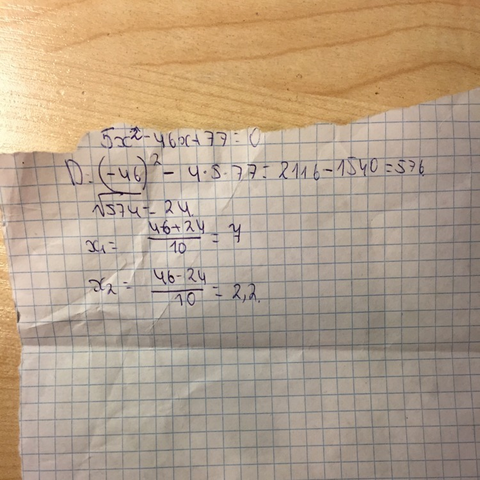 5x²-46x+77=0
D=(-46)²-4·5·77=2116-1540=576
√574=24
x₁= 46+24/10=7
x₂= 46-24/10=2,2.